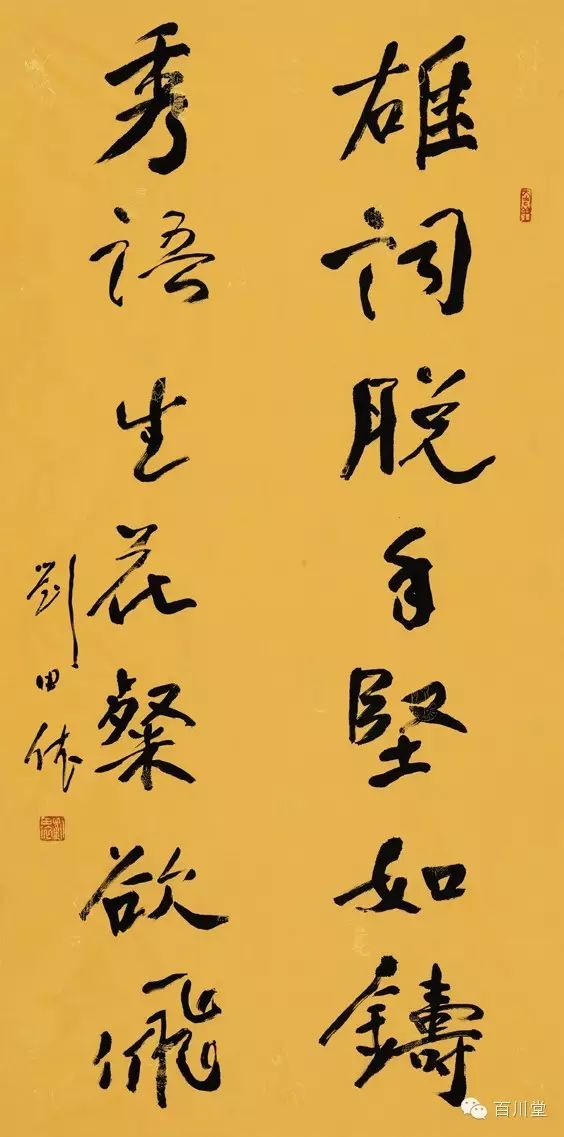 雄词脱手坚如鑄
秀语生花粲欲飛
劉田依
百川堂